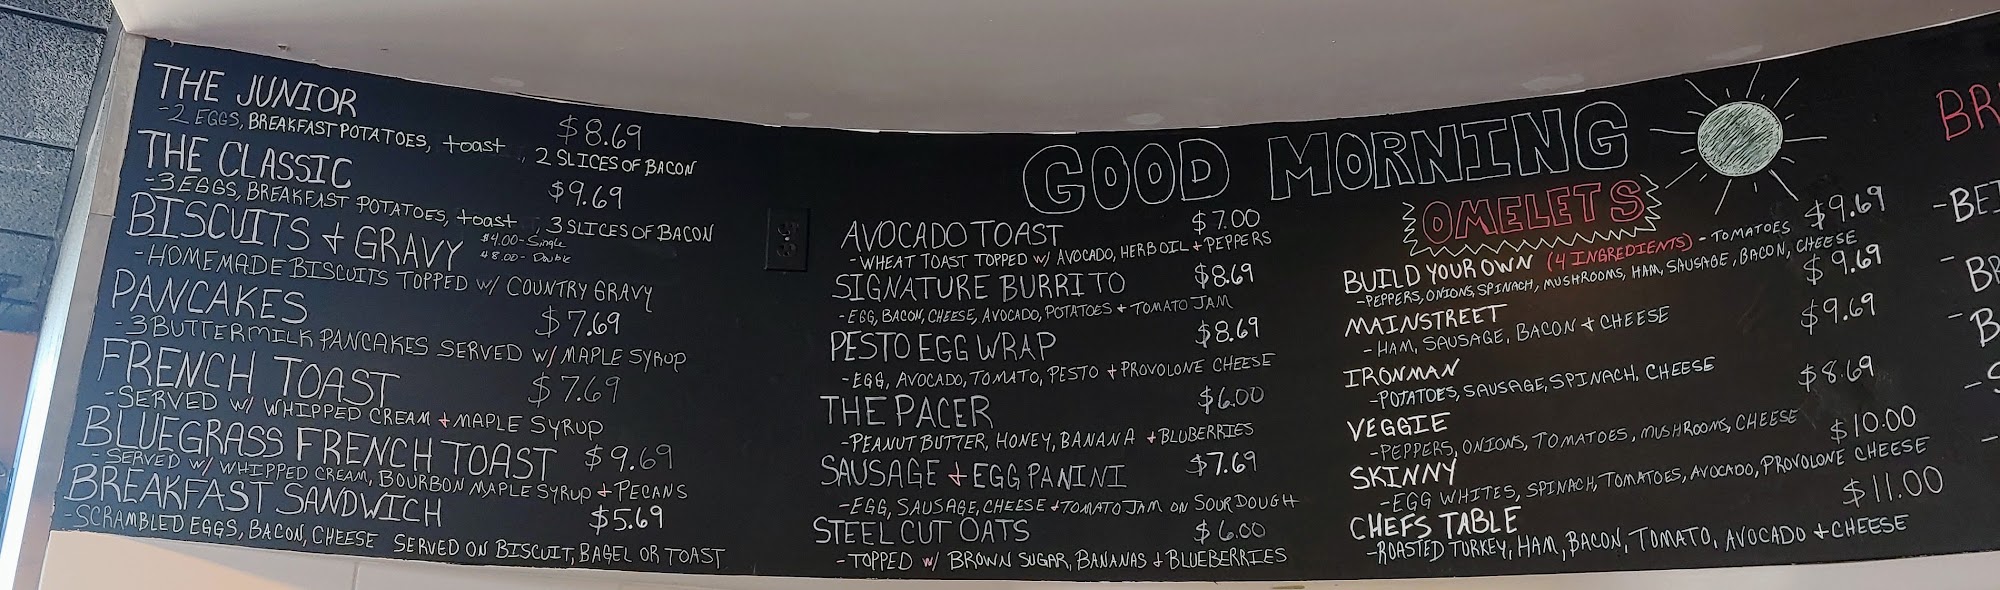 THE JUNIOR $8.69
-2 EGGS, BREAKFAST POTATOES, toast, 2 SLICES OF BACON
THE CLASSIC $9.69
-3 EGGS, BREAKFAST POTATOES, toast, 3 SLICES OF BACON
BISCUITS + GRAVY $4.00 - Single
$8.00 - Double
-HOMEMADE BISCUITS TOPPED W/ COUNTRY GRAVY
PANCAKES $7.69
-3 BUTTERMILK PANCAKES SERVED W/ MAPLE SYRUP
FRENCH TOAST $7.69
-SERVED W/ WHIPPED CREAM + MAPLE SYRUP
BLUEGRASS FRENCH TOAST $9.69
-SERVED W/ WHIPPED CREAM, BOURBON MAPLE SYRUP + PECANS
BREAKFAST SANDWICH $5.69
-SCRAMBLED EGGS, BACON, CHEESE SERVED ON BISCUIT, BAGEL OR TOAST
GOOD MORNING
AVOCADO TOAST $7.00
-WHEAT TOAST TOPPED W/ AVOCADO, HERB OIL + PEPPERS
SIGNATURE BURRITO $8.69
-EGG, BACON, CHEESE, AVOCADO, POTATOES + TOMATO JAM
PESTO EGG WRAP $8.69
-EGG, AVOCADO, TOMATO, PESTO + PROVOLONE CHEESE
THE PACER $6.00
-PEANUT BUTTER, HONEY, BANANA + BLUBERRIES
SAUSAGE + EGG PANINI $7.69
-EGG, SAUSAGE, CHEESE + TOMATO JAM ON SOURDOUGH
STEEL CUT OATS $6.00
-TOPPED W/ BROWN SUGAR, BANANAS + BLUEBERRIES
OMELETS
BUILD YOUR OWN (4 INGREDIENTS) - TOMATOES $9.69
-PEPPERS, ONIONS, SPINACH, MUSHROOMS, HAM, SAUSAGE, BACON, CHEESE
MAINSTREET $9.69
-HAM, SAUSAGE, BACON + CHEESE
IRONMAN $9.69
-POTATOES, SAUSAGE, SPINACH, CHEESE
VEGGIE $8.69
-PEPPERS, ONIONS, TOMATOES, MUSHROOMS, CHEESE
SKINNY $10.00
-EGG WHITES, SPINACH, TOMATOES, AVOCADO, PROVOLONE CHEESE
CHEFS TABLE $11.00
-ROASTED TURKEY, HAM, BACON, TOMATO, AVOCADO + CHEESE